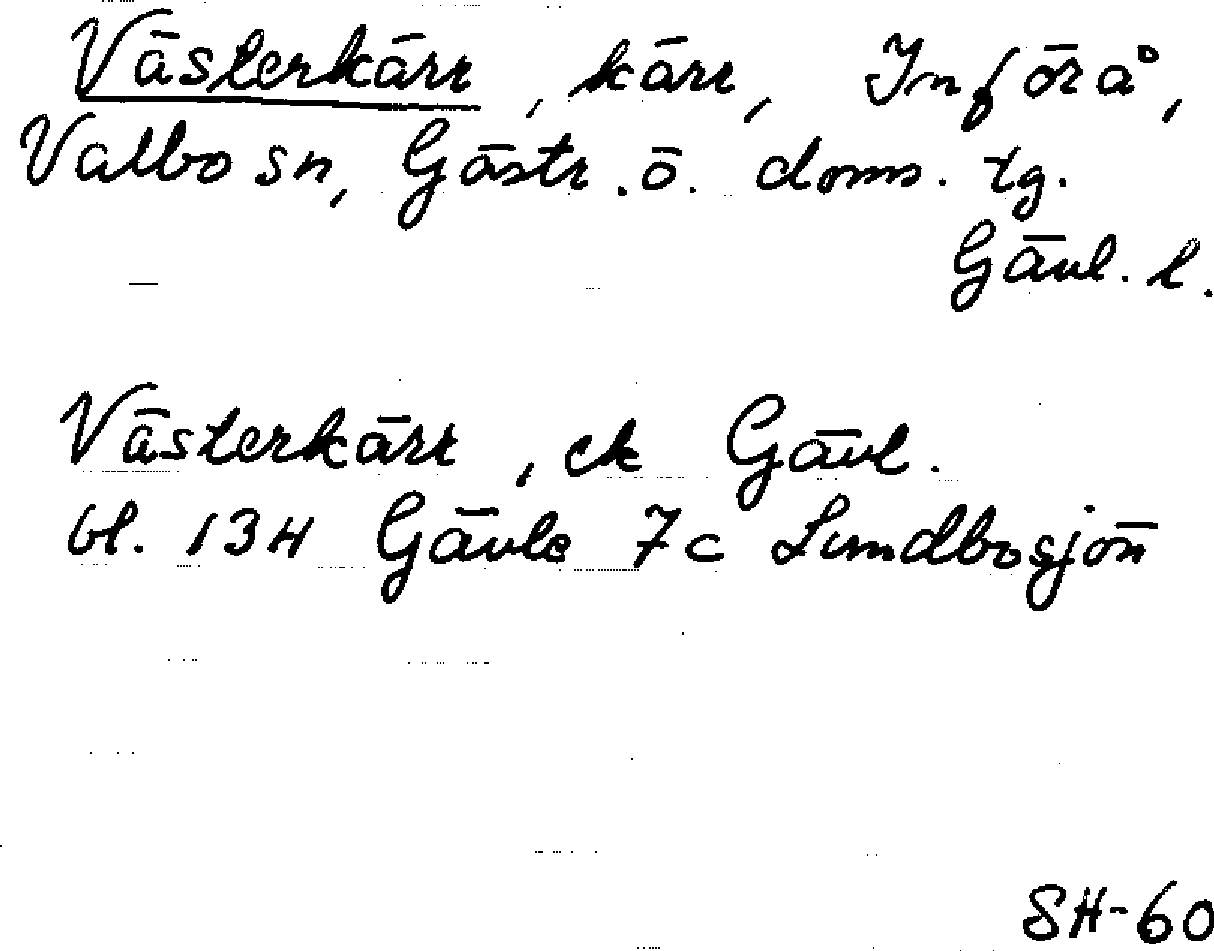 Västerkärr, kärr, Införå,
Valbo sn, Gästr. ö. doms. tg.
Gävl. l.
Västerkärr, ek Gävl.
bl. 13H Gävle 7c Lundbosjön
SH-60